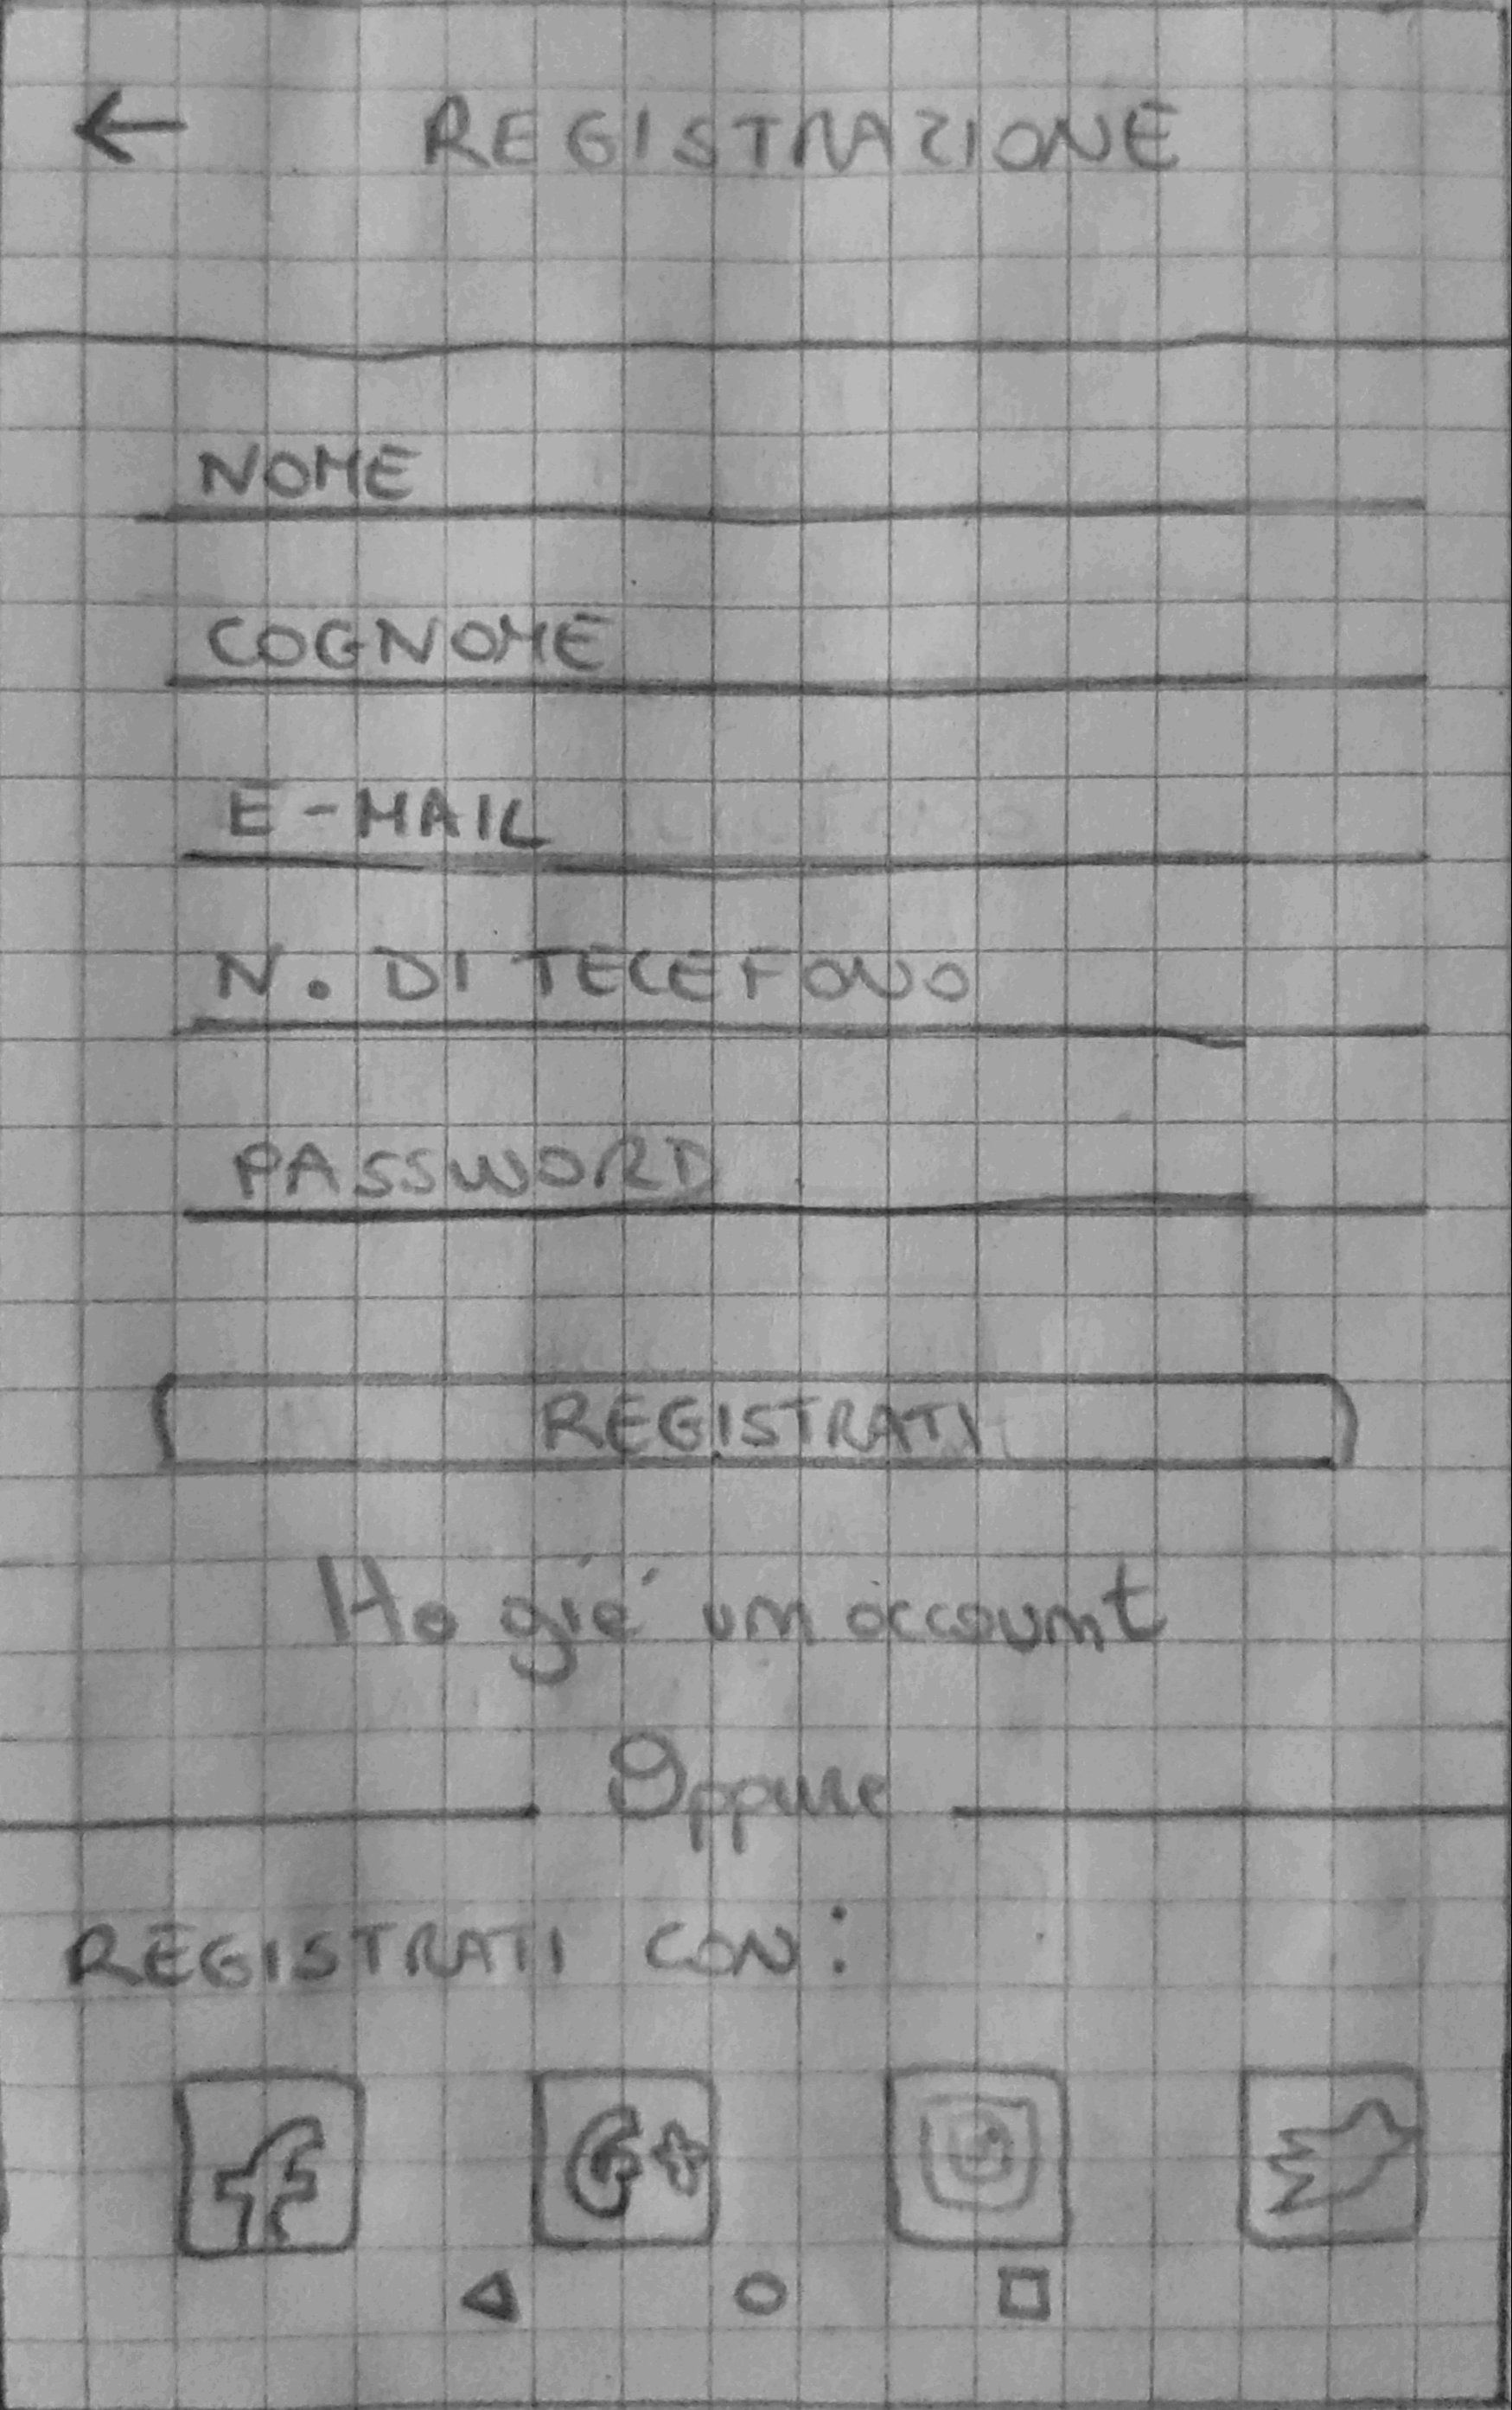 ← REGISTRAZIONE
NOME
COGNOME
E-MAIL
N. DI TELEFONO
PASSWORD
REGISTRATI
Ho già un account
Oppure
REGISTRATI CON:
f G+